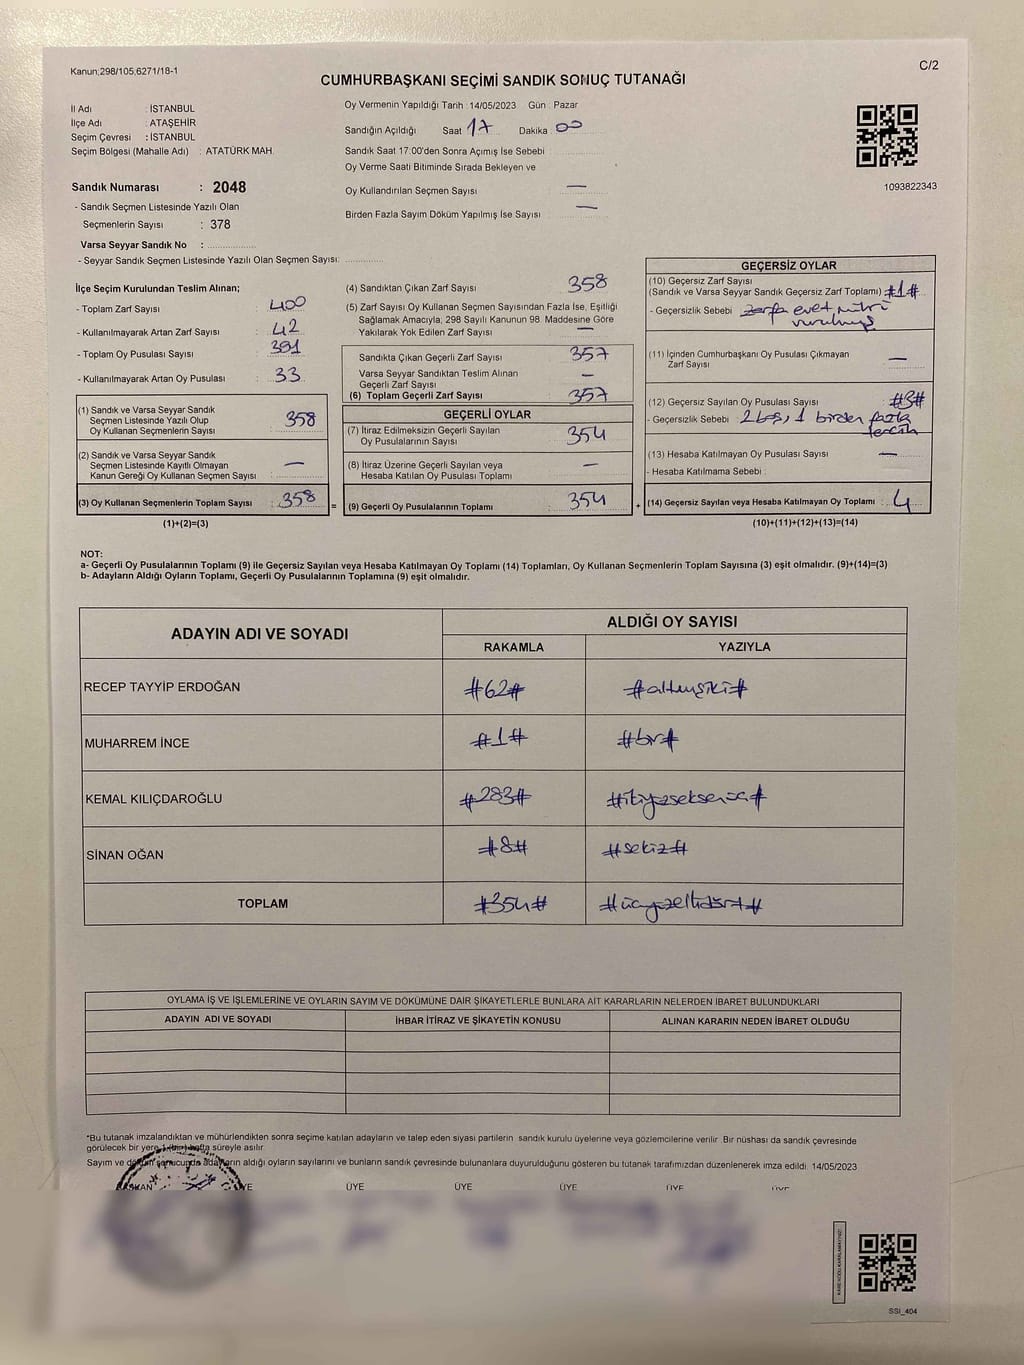 Kanun;298/105,6271/18-1
C/2
CUMHURBAŞKANI SEÇİMİ SANDIK SONUÇ TUTANAĞI
İl Adı : İSTANBUL
İlçe Adı : ATAŞEHİR
Seçim Çevresi : İSTANBUL
Seçim Bölgesi (Mahalle Adı) : ATATÜRK MAH.
Oy Vermenin Yapıldığı Tarih : 14/05/2023 Gün : Pazar
Sandığın Açıldığı Saat 17 Dakika 00
Sandık Saat 17:00'den Sonra Açımış İse Sebebi :
Oy Verme Saati Bitiminde Sırada Bekleyen ve
Oy Kullandırılan Seçmen Sayısı : —
Birden Fazla Sayım Döküm Yapılmış İse Sayısı : —
1093822343
Sandık Numarası : 2048
- Sandık Seçmen Listesinde Yazılı Olan
Seçmenlerin Sayısı : 378
Varsa Seyyar Sandık No :
- Seyyar Sandık Seçmen Listesinde Yazılı Olan Seçmen Sayısı:
İlçe Seçim Kurulundan Teslim Alınan;
- Toplam Zarf Sayısı : 400
- Kullanılmayarak Artan Zarf Sayısı : 42
- Toplam Oy Pusulası Sayısı : 391
- Kullanılmayarak Artan Oy Pusulası : 33
(1) Sandık ve Varsa Seyyar Sandık
Seçmen Listesinde Yazılı Olup
Oy Kullanan Seçmenlerin Sayısı : 358
(2) Sandık ve Varsa Seyyar Sandık
Seçmen Listesinde Kayıtlı Olmayan
Kanun Gereği Oy Kullanan Seçmen Sayısı : —
(3) Oy Kullanan Seçmenlerin Toplam Sayısı : 358 =
(1)+(2)=(3)
(4) Sandıktan Çıkan Zarf Sayısı : 358
(5) Zarf Sayısı Oy Kullanan Seçmen Sayısından Fazla İse, Eşitliği
Sağlamak Amacıyla, 298 Sayılı Kanunun 98. Maddesine Göre
Yakılarak Yok Edilen Zarf Sayısı : —
Sandıkta Çıkan Geçerli Zarf Sayısı : 357
Varsa Seyyar Sandıktan Teslim Alınan
Geçerli Zarf Sayısı : —
(6) Toplam Geçerli Zarf Sayısı : 357
GEÇERLİ OYLAR
(7) İtiraz Edilmeksizin Geçerli Sayılan
Oy Pusulalarının Sayısı : 354
(8) İtiraz Üzerine Geçerli Sayılan veya
Hesaba Katılan Oy Pusulası Toplamı : —
(9) Geçerli Oy Pusulalarının Toplamı : 354 +
GEÇERSİZ OYLAR
(10) Geçersiz Zarf Sayısı
(Sandık ve Varsa Seyyar Sandık Geçersiz Zarf Toplamı) : #1#
- Geçersizlik Sebebi : zarfa evet mührü
vurulmuş
(11) İçinden Cumhurbaşkanı Oy Pusulası Çıkmayan
Zarf Sayısı : —
(12) Geçersiz Sayılan Oy Pusulası Sayısı : #3#
- Geçersizlik Sebebi : 2 boş, 1 birden fazla
tercih
(13) Hesaba Katılmayan Oy Pusulası Sayısı : —
- Hesaba Katılmama Sebebi :
(14) Geçersiz Sayılan veya Hesaba Katılmayan Oy Toplamı : 4
(10)+(11)+(12)+(13)=(14)
NOT:
a- Geçerli Oy Pusulalarının Toplamı (9) ile Geçersiz Sayılan veya Hesaba Katılmayan Oy Toplamı (14) Toplamları, Oy Kullanan Seçmenlerin Toplam Sayısına (3) eşit olmalıdır. (9)+(14)=(3)
b- Adayların Aldığı Oyların Toplamı, Geçerli Oy Pusulalarının Toplamına (9) eşit olmalıdır.
ADAYIN ADI VE SOYADI
ALDIĞI OY SAYISI
RAKAMLA YAZIYLA
RECEP TAYYİP ERDOĞAN #62# #altmışiki#
MUHARREM İNCE #1# #bir#
KEMAL KILIÇDAROĞLU #283# #ikiyüzseksenüç#
SİNAN OĞAN #8# #sekiz#
TOPLAM #354# #üçyüzellidört#
OYLAMA İŞ VE İŞLEMLERİNE VE OYLARIN SAYIM VE DÖKÜMÜNE DAİR ŞİKAYETLERLE BUNLARA AİT KARARLARIN NELERDEN İBARET BULUNDUKLARI
ADAYIN ADI VE SOYADI İHBAR İTİRAZ VE ŞİKAYETİN KONUSU ALINAN KARARIN NEDEN İBARET OLDUĞU
*Bu tutanak imzalandıktan ve mühürlendikten sonra seçime katılan adayların ve talep eden siyasi partilerin sandık kurulu üyelerine veya gözlemcilerine verilir. Bir nüshası da sandık çevresinde
görülecek bir yere 1 (bir) hafta süreyle asılır.
Sayım ve döküm sonucunda adayların aldığı oyların sayılarını ve bunların sandık çevresinde bulunanlara duyurulduğunu gösteren bu tutanak tarafımızdan düzenlenerek imza edildi. 14/05/2023
BAŞKAN ÜYE ÜYE ÜYE ÜYE ÜYE ÜYE
SSI_404